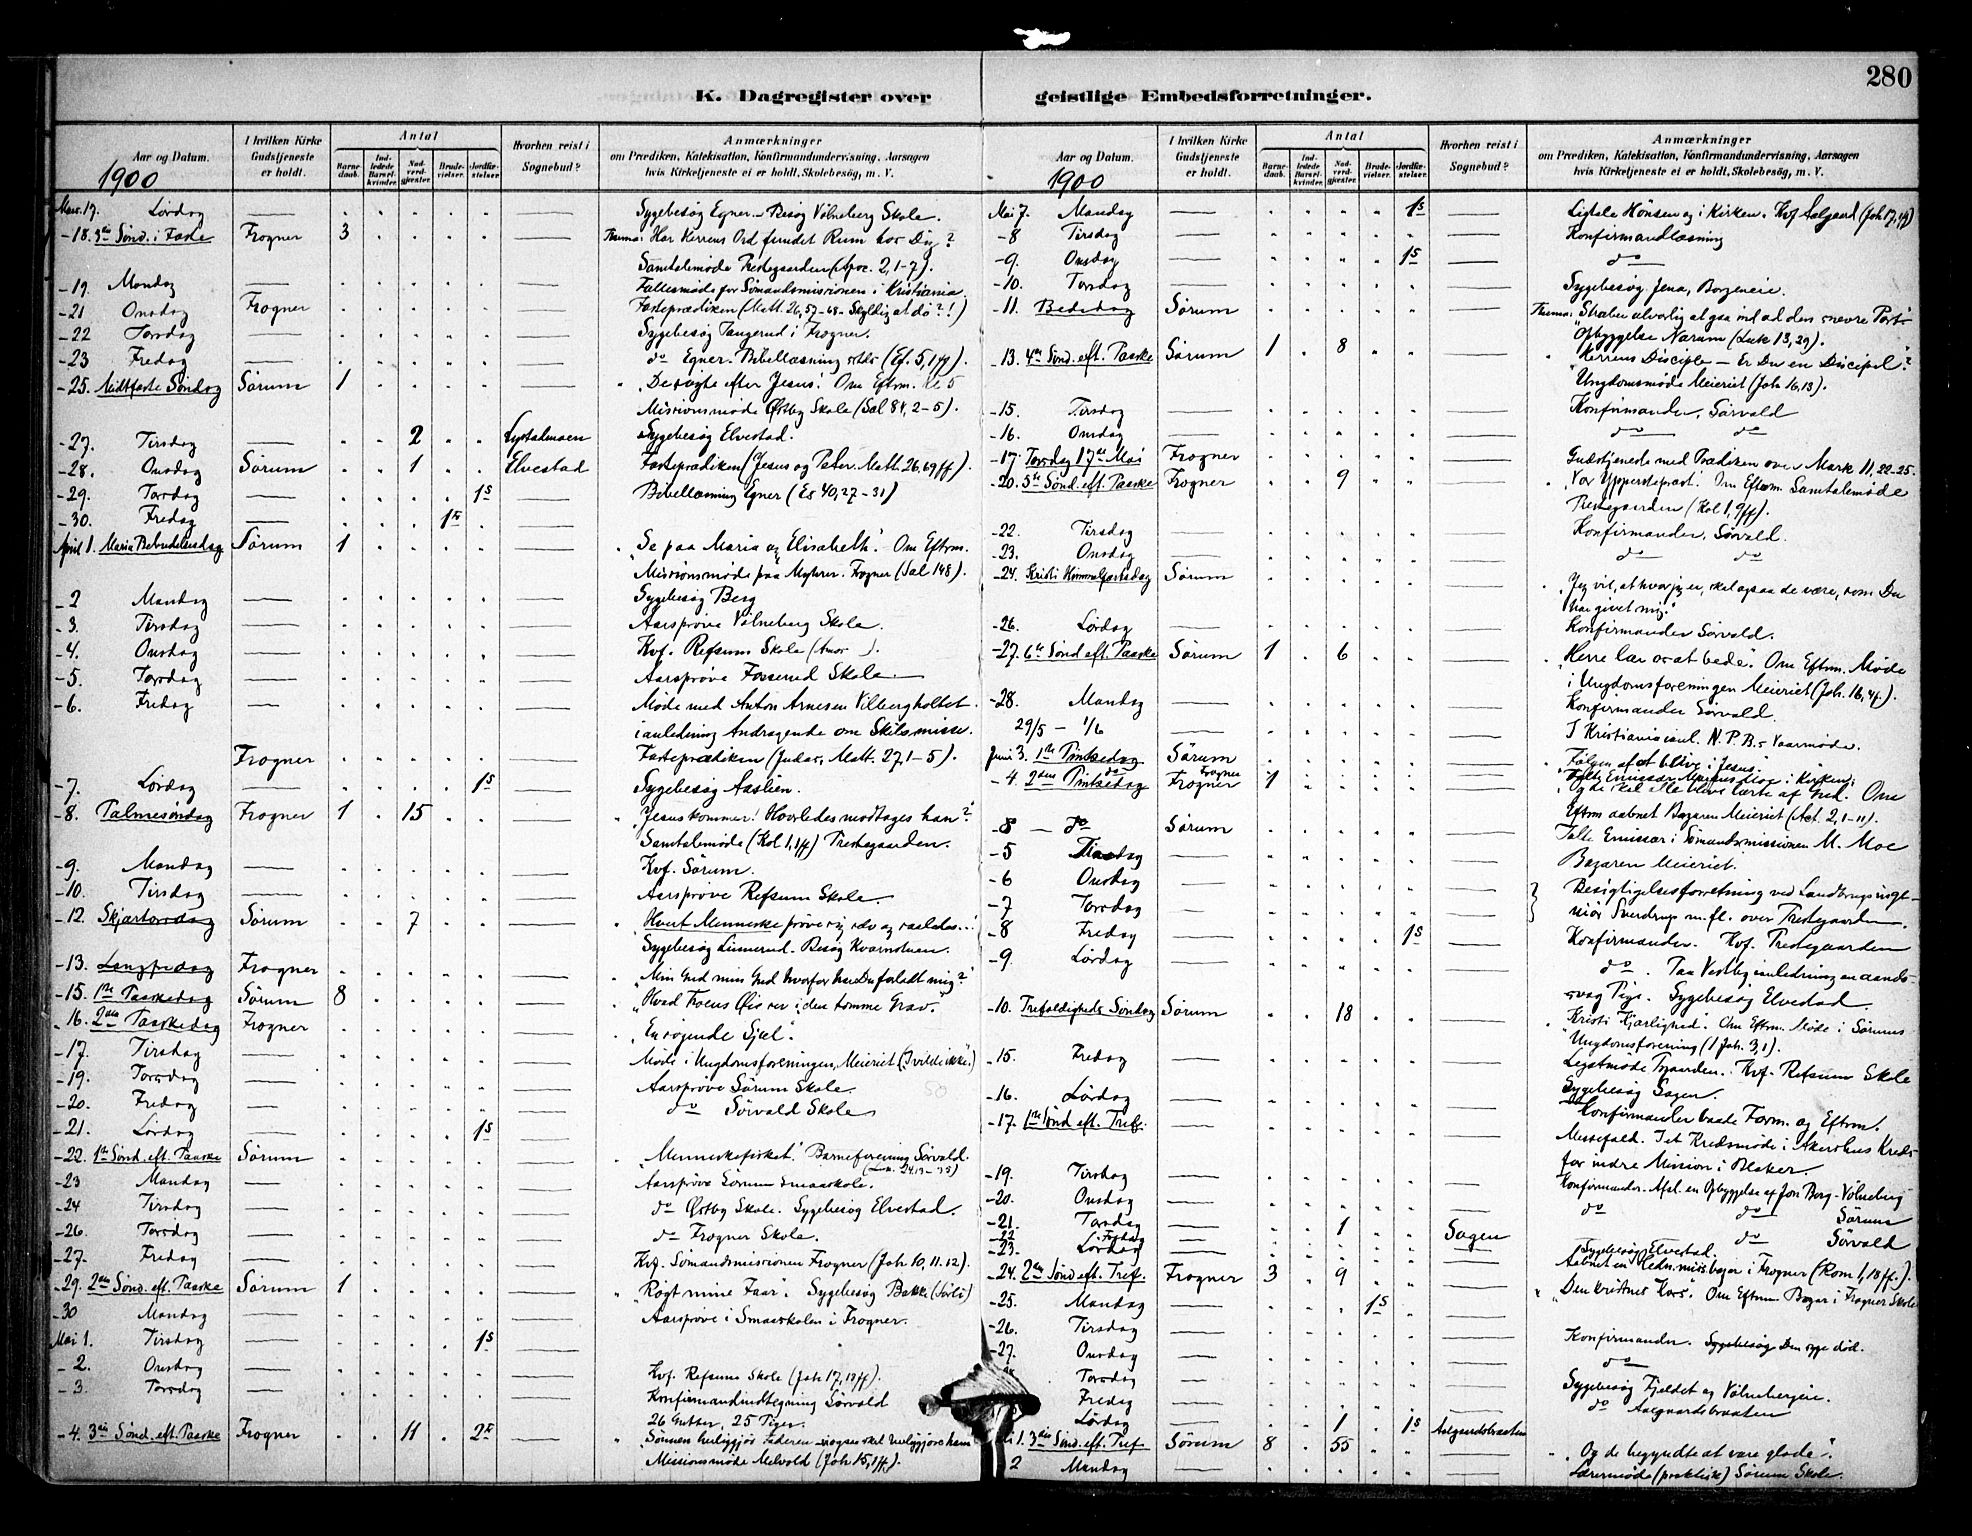 280
K. Dagregister over
geistlige Embedsforretninger.
Aar og Datum.
1900
I hvilken Kirke Gudstjeneste er holdt.
Antal
Barnedaab.
Indledede Barselkvinder.
Nadverdgjester.
Brudevielser.
Jordfæstelser.
Hvorhen reist i Sognebud?
Anmærkninger
om Prædiken, Katekisation, Konfirmandundervisning, Aarsagen
hvis Kirketjeneste ei er holdt, Skolebesøg, m. V.
Mars 17. Lördag Sygebesög Egner. Besög Völneberg Skole.
-18. 3die Sönd. i Faste Frogner 3 Thema: Har Herrens Ord fundet Rum hos Dig?
Samtalemöde Prestegaarden (Apoc. 2,1-7).
-19. Mandag Fællesmöde for Sömandsmissionen i Kristiania.
-21 Onsdag Frogner Fasteprædiken (Matt. 26,57-68 - Skyldig at dö?!)
-22 Torsdag Sygebesög Tangerud i Frogner.
-23 Fredag do Egner. Bibellæsning (Ef. 5,1ff).
-25. Midtfaste Söndag Sörum 1 "De sögte efter Jesus". Om Eftrm. Kl. 5
Missionsmöde Østby Skole (Sal 84, 2-5).
-27. Tirsdag 2 Sygebesög Elvestad.
-28. Onsdag Sörum 1 Elvestad Fasteprædiken (Jesus og Peter. Matth. 26,69ff).
-29. Torsdag 1s Bibellæsning Egner (Es 40,27-31)
-30. Fredag 1
April 1. Maria Bebudelsesdag Sörum 1 "Se paa Maria og Elisabeth". Om Eftrm.
Missionsmöde paa Myhrer. Frogner (Sal 148).
-2 Mandag Sygebesög Berg
-3. Tirsdag Aarspröve Völneberg Skole.
-4. Onsdag Kvf. Refsum Skole (Amos ).
-5. Torsdag Aarspröve Fosserud Skole.
-6. Fredag Möde med Anton Arnesen Vilbergholtet
i anledning Andragende om Skilsmisse.
Frogner Fasteprædiken (Judas, Matt. 27,1-5).
-7. Lördag 1s Sygebesög Aaslien.
-8. Palmesöndag Frogner 1 15 "Jesus kommer! Hvorledes modtages han?"
Samtalemöde (Kol 1,1ff) Prestegaarden.
-9. Mandag Kvf. Sörum.
-10. Tirsdag Aarspröve Refsum Skole.
-12. Skjærtorsdag Sörum 7 "Hvert Menneske pröve sig selv og saaledes...
Sygebesög Linnerud. Besög Kvarnstuen.
-13. Langfredag Frogner "Min Gud min Gud hvorfor har Du forladt mig?"
-15. 1ste Paaskedag Sörum 8 "Hvad Troens Öie ser i den tomme Grav."
-16. 2den Paaskedag Frogner "En sögende Sjæl".
-17. Tirsdag Möde i Ungdomsforeningen, Meieriet (I vilde ikke.)
-19. Torsdag Aarspröve Sörum Skole
-20. Fredag do Sörvald Skole
-21. Lördag 1s
-22. 1ste Sönd. eft. Paaske Sörum "Menneskefisket". Barneforening Sörvald.
(Luk. 24,13-35)
-23 Mandag Aarspröve Sörum Smaaskole.
-24 Tirsdag do Østby Skole. Sygebesög Elvestad.
-26. Torsdag do Frogner Skole.
-27. Fredag Kvf. Sömandsmissionen Frogner (Joh. 10, 11.12).
-29. 2den Sönd. eft. Paaske Sörum 1 "Rögt mine Faar". Sygebesög Bakke (Sörli)
-30 Mandag Aarspröve i Smaaskolen i Frogner.
Mai 1. Tirsdag 1s
-2. Onsdag Kvf. Refsum Skole (Joh 17,13ff).
-3. Torsdag Konfirmandindtegning Sörvald
26 Gutter, 25 Piger.
-4. 3die Sönd. eft. Paaske Frogner 11 2 "Sönnen herliggjör Faderen
Missionsmöde Melvold (Joh 15,1ff).
Aar og Datum.
1900
I hvilken Kirke Gudstjeneste er holdt.
Antal
Barnedaab.
Indledede Barselkvinder.
Nadverdgjester.
Brudevielser.
Jordfæstelser.
Hvorhen reist i Sognebud?
Anmærkninger
om Prædiken, Katekisation, Konfirmandundervisning, Aarsagen
hvis Kirketjeneste ei er holdt, Skolebesøg, m. V.
Mai 7. Mandag 1s Ligtale Hönsen og i Kirken. Kvf Aalgaard
-8 Tirsdag Konfirmandlæsning
-9. Onsdag 1s do
-10. Torsdag Sygebesög Jena, Borgeneie.
-11. Bededag Sörum Thema: Stræber alvorlig at gaa ind ad den snevre Port
Opbyggelse Nærum (Luk 13,29).
-13. 4de Sönd. eft. Paaske Sörum 1 8 Herrens Disciple - Er Du en Discipel?
Ungdomsmöde Meieriet (Joh 16,13).
-15. Tirsdag Konfirmander, Sörvald
-16. Onsdag do do
-17 Torsdag 17de Mai Frogner Gudstjeneste med Prædiken over Mark 11, 22-25.
-20. 5te Sönd. eft. Paaske Frogner 9 "Vor Ypperstepræst". Om Eftrm. Samtalemöde
Prestegaarden (Kol 1, 9ff).
-22. Tirsdag Konfirmander, Sörvald.
-23. Onsdag do do
-24. Kristi Himmelfartsdag Sörum "Jeg vil, at hvor jeg er, skal ogsaa de være, som Du
har givet mig."
-26. Lördag Konfirmander Sörvald.
-27. 6te Sönd. eft. Paaske Sörum 1 6 "Herre lær os at bede". Om Eftrm. Möde
i Ungdomsforeningen Meieriet
-28. Mandag Konfirmander Sörvald.
29/5 - 1/6 I Kristiania N.P.B.s Vaarmöde.
Juni 3. 1ste Pintsedag Sörum Fölgen af at blive i Jesus.
-4. 2den Pintsedag Frogner 1 "Og de skal alle blive lærte af Gud". Om
Eftrm aabnet Bazaren Meieriet (Act. 2,1-11).
-8 - do Sörum Talte Emissær i Sömandsmissionen M. Moe
-5 Tirsdag Bazaren Meieriet.
-6 Onsdag Besigtigelsesforretning ved
-7 Torsdag Sverdrup m.fl. over Prestegaarden.
-8 Fredag 1s Konfirmander. Kvf. Prestegaarden
-9. Lördag do. Paa Vestby i anledning en aands-
svag Pige. Sygebesög Elvestad
-10. Trefoldigheds Söndag Sörum 18 "Kristi Kjærlighed". Om Eftrm. Möde i Sörums
Ungdomsforening (1 Joh. 3,1).
-15. Fredag Kvf. Refsum Skole
-16. Lördag Sygebesög Sagen.
-17. 1ste Sönd eft. Tref. Konfirmander baade Form. og Eftrm.
Messefald. I et Kredsmöde i Akershus Kreds
for indre Mission i Blaker.
-19. Tirsdag Konfirmander. Afsl. en Opbyggelse af Jon Berg-Völneberg
-20. Onsdag do do Sörum
-21. Torsdag 1 Sagen do Sörvald
-22 Fredag
-23. Lördag Sygebesög Elvestad.
-24. 2den Sönd eft. Tref. Frogner 3 9 Aabnet en Hedn. miss. bazar i Frogner (Rom 1,18ff.).
-25. Mandag 1s "Den kristnes Kors". Om Eftrm Bazar i Frogner Skole
-26. Tirsdag
-27. Onsdag Konfirmander. Sygebesög Den syge död.
Torsdag do
Fredag Sygebesög Fjeldet og Völnebergeie.
Lördag 1 1s Aalgaardsbraaten do Aalgaardsbraaten
1. 3die Sönd. eft. Tref Sörum 8 55 "Og de begyndte at være glade".
2 Mandag Lærermöde (praktisk) Sörum Skole.